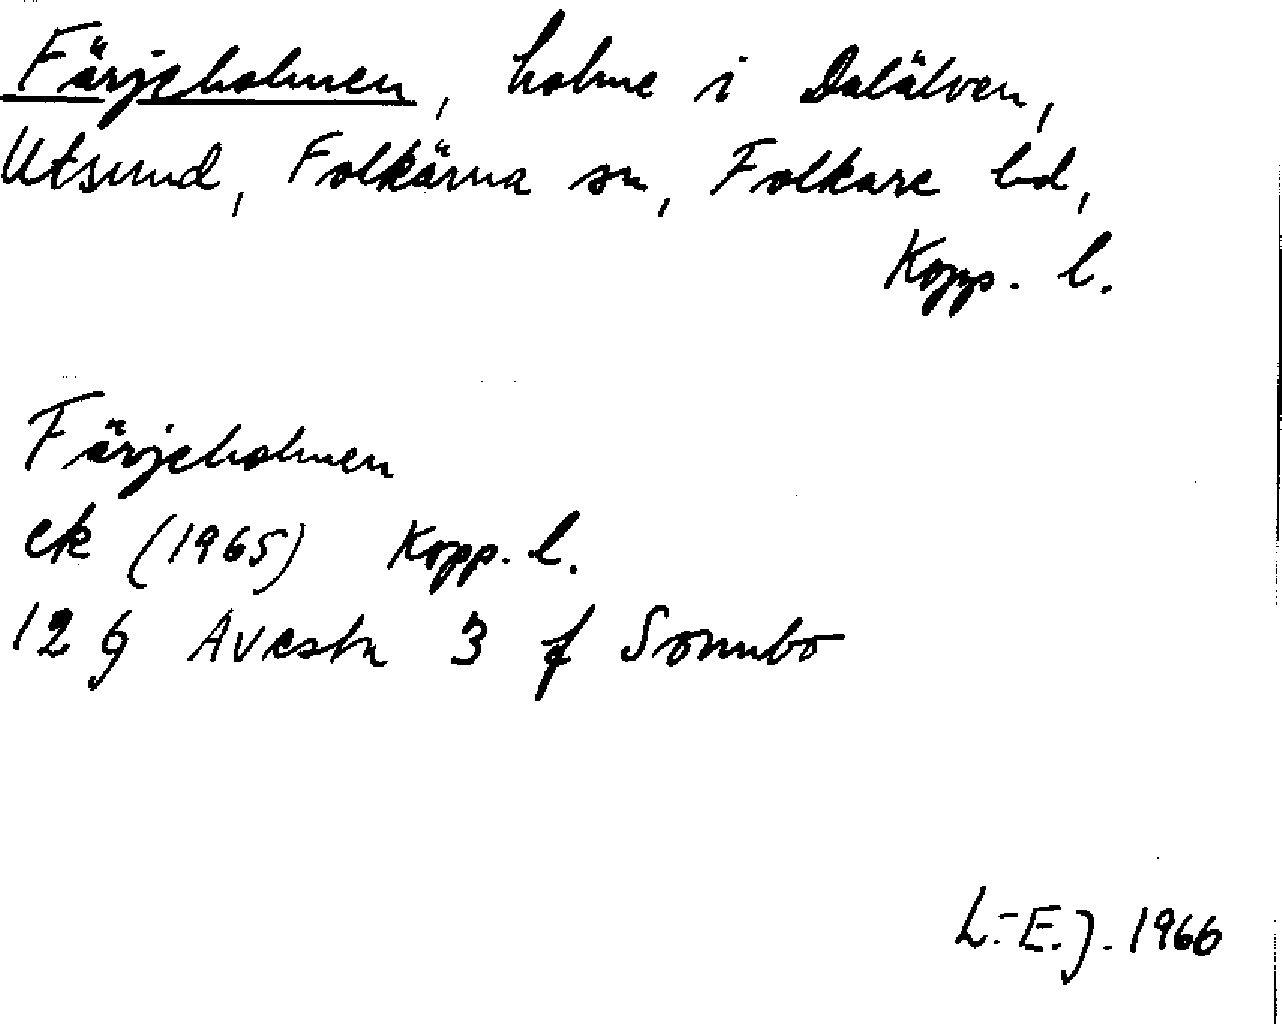 Färjeholmen, holme i Dalälven,
Utsund, Folkärna sn, Folkare hd,
Kopp. l.
Färjeholmen
ek (1965) Kopp. l.
12 G Avesta 3 f Sonnbo
L.-E.J. 1966